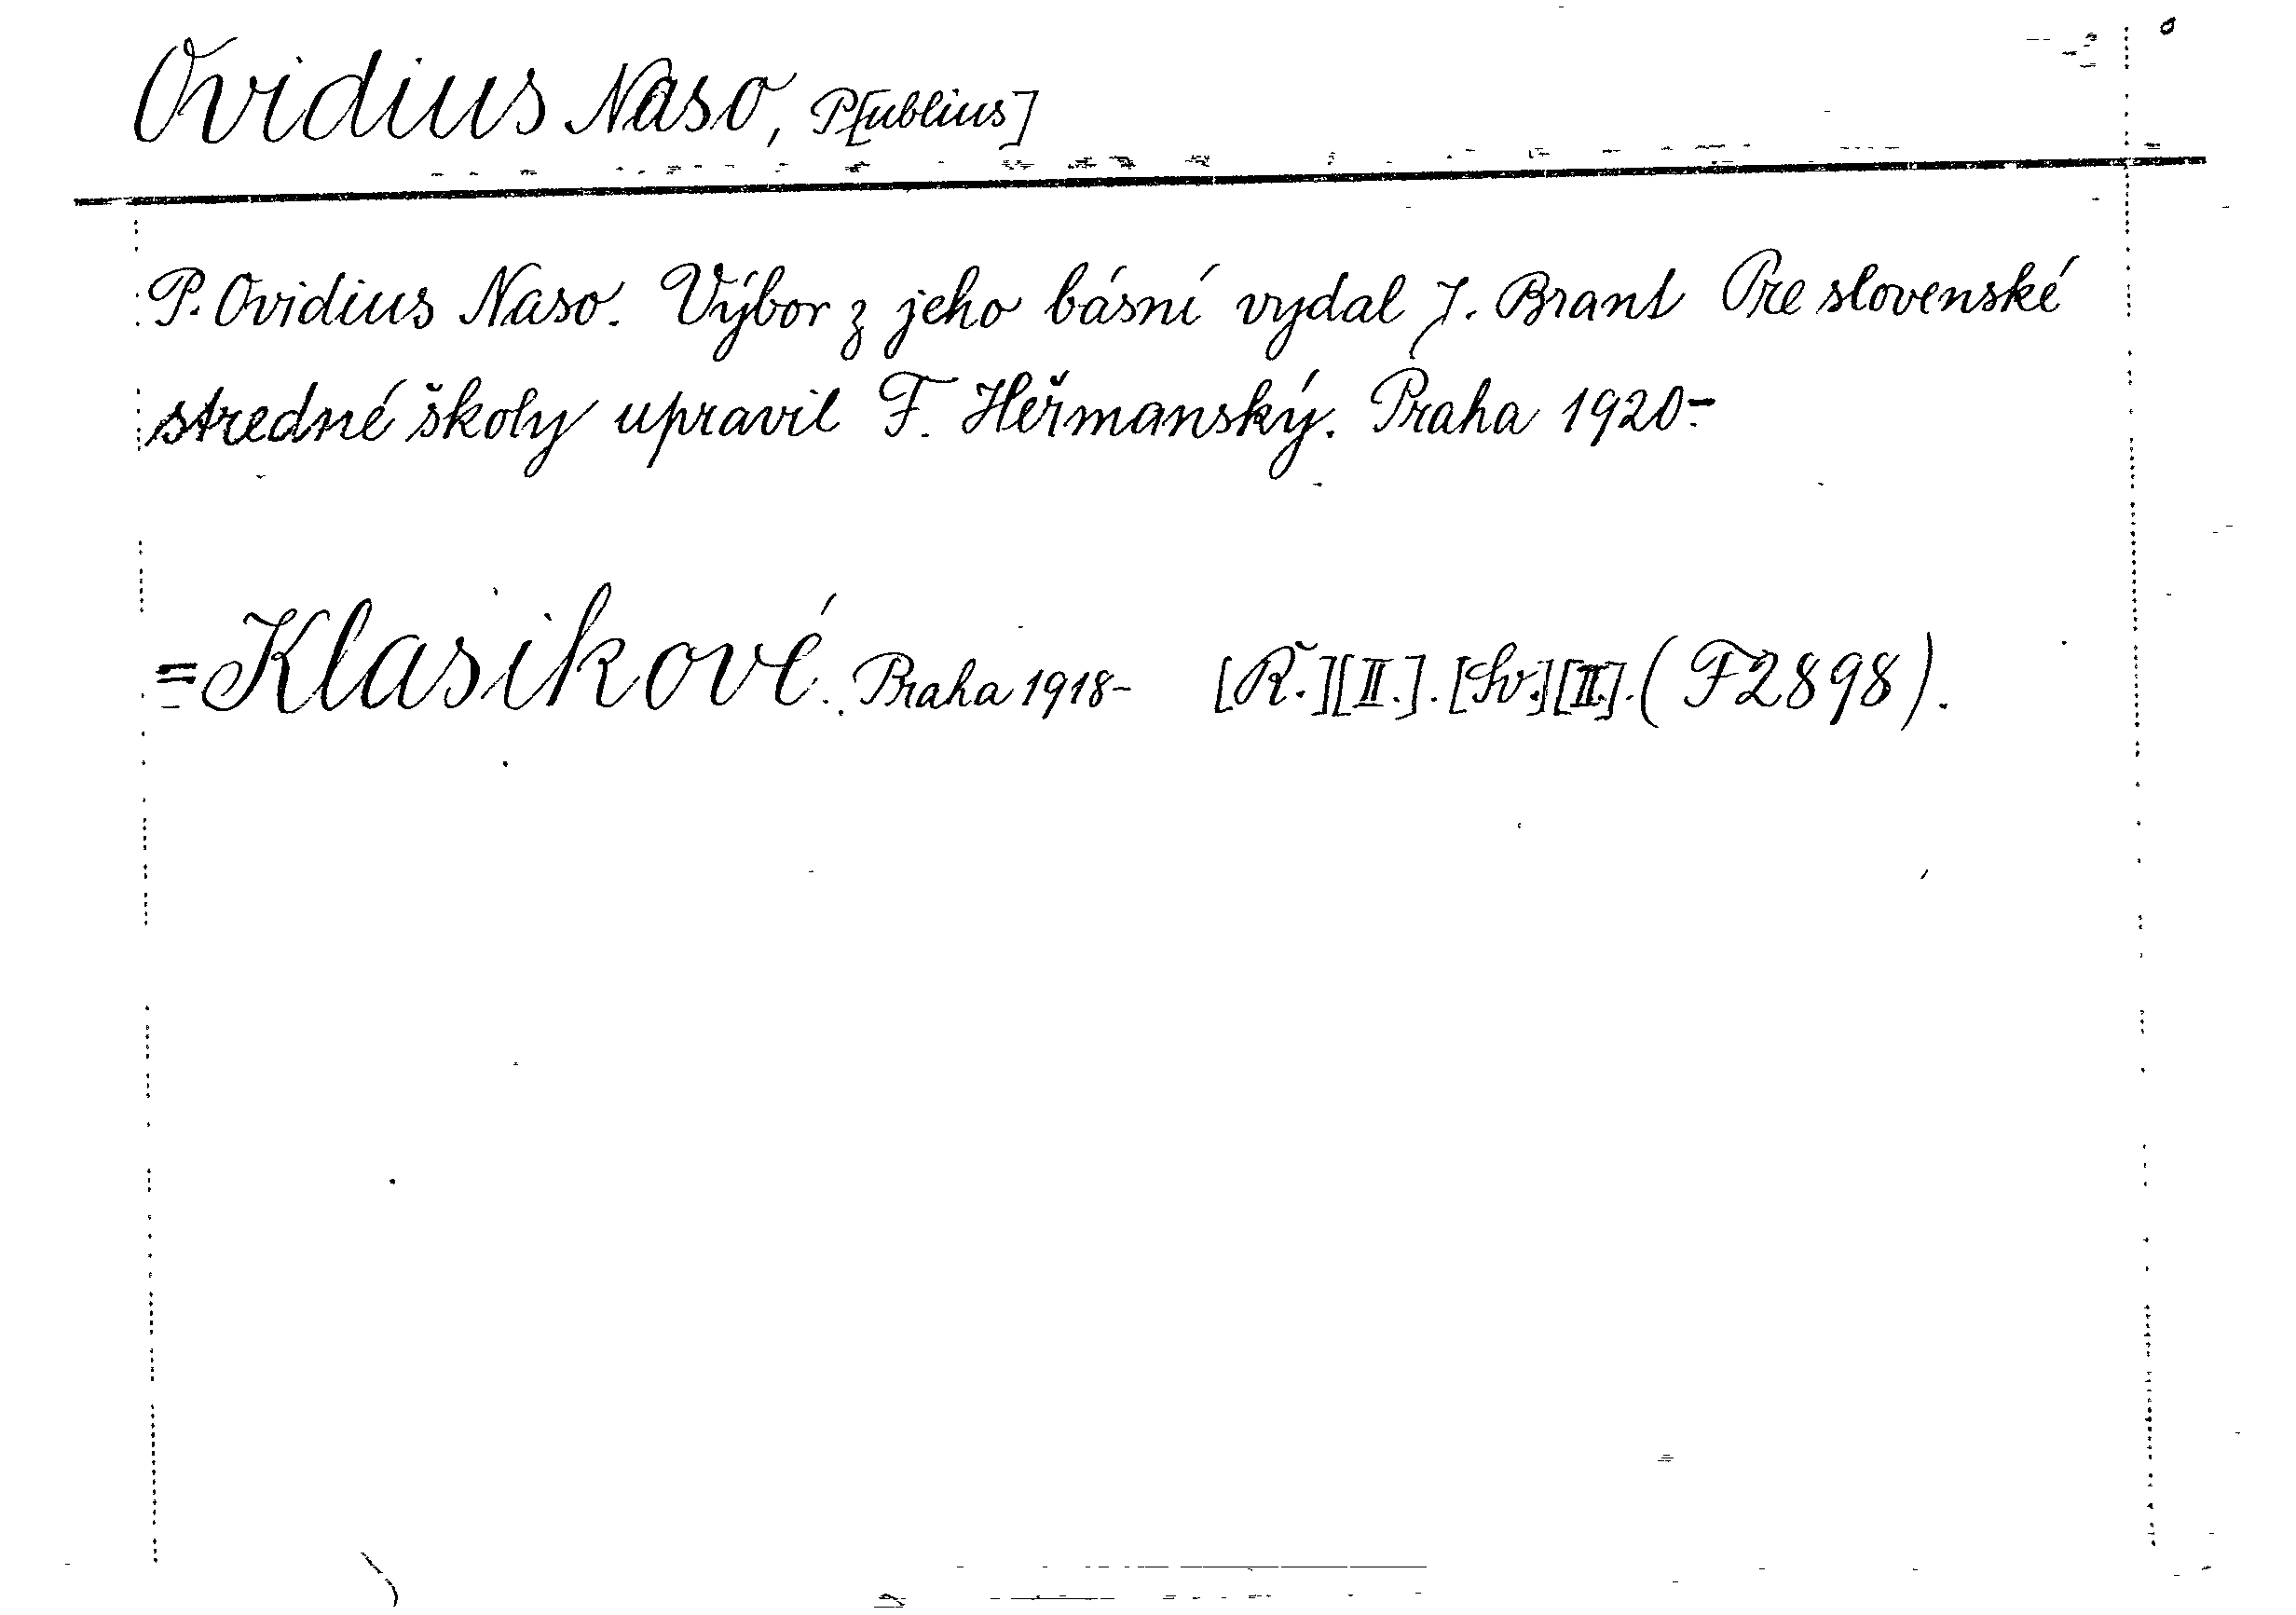 Ovidius Naso, P[ublius]
P. Ovidius Naso. Výbor z jeho básní vydal J. Brant Pre slovenské
stredné školy upravil F. Heřmanský. Praha 1920.-
=Klasikové. Praha 1918- [Ř.][II.]. [Sv.][II.]. (F2898).